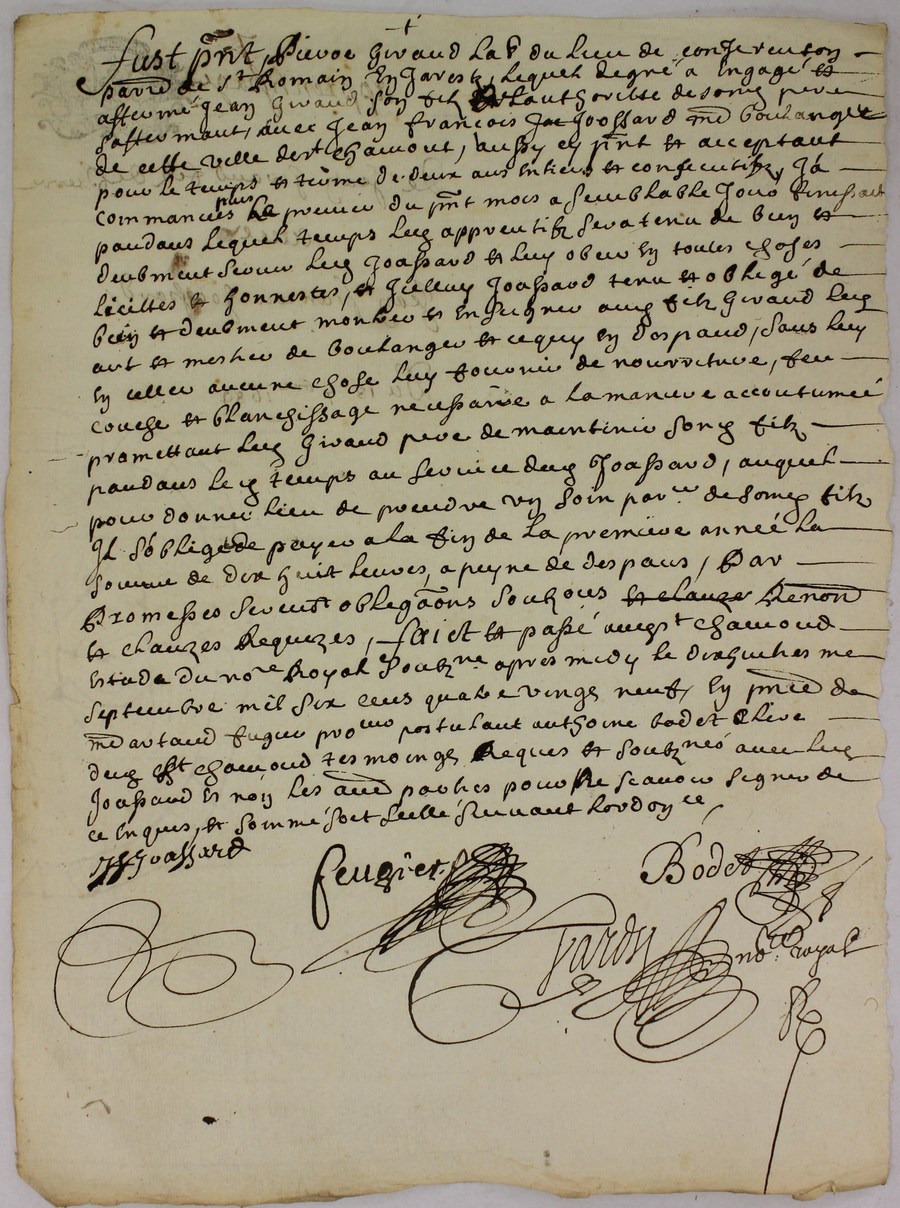 fust pnt, Pierre Giraud lab du lieu de
paroe de st Romain en Jarestz, lequel de gré a Engagé et
affermé Jean Giraud son filz de lauthoritté de song pere
saffermant, avec Jean François Joassard md boulanger
de cette ville de st chamont, aussy cy pnt et acceptant
pour le temps et terme de deux ans entiers et consecutifz, Ja
commancés le premier du pnt mois a semblable Jour finissant
plus
pandans lequel temps led apprentifz sera tenu de bien et
deubment servir led Joassard et luy obeir en toutes choses
licittes et honnestes, et Jcelluy Joassard tenu et obligé de
bien et deubment monstrer et enseigner aud filz Giraud led
art et mestier de boulanger et ce quy en despand, sans luy
en celler aucune chose luy fournir de nourriture, feu
couche et blanchissage necessaire a la maniere accoutumeé
promettant led Giraud pere de maintenir song filz
pandans led temps au service dud Joassard, auquel
pour donner lieu de prendre un soin parer de somd filz
Il s'oblige de payer a la fin de la premiere année la
somme de dix huit livres, a peyne de despans, Par
Promesses serment obligaons soubzons et clauzes Renon
et clauzes Requizes, faict et passé aud st chamond
Estude du nore Royal soubzne apres midy le dixhuictiesme
septembre mil six cens quatre vingt neuf, en pnce de
md artaud fugier procur postulant anthoine bodet clerc
dud st chamond tesmoings Requis et soubznes avec led
Joassard et non les aud parties pour ne scavoir signer de
ce enquis, et sommé soit scellé suivant lordonce
JF Joassard
feugier
Bodet
Tardy nore royal